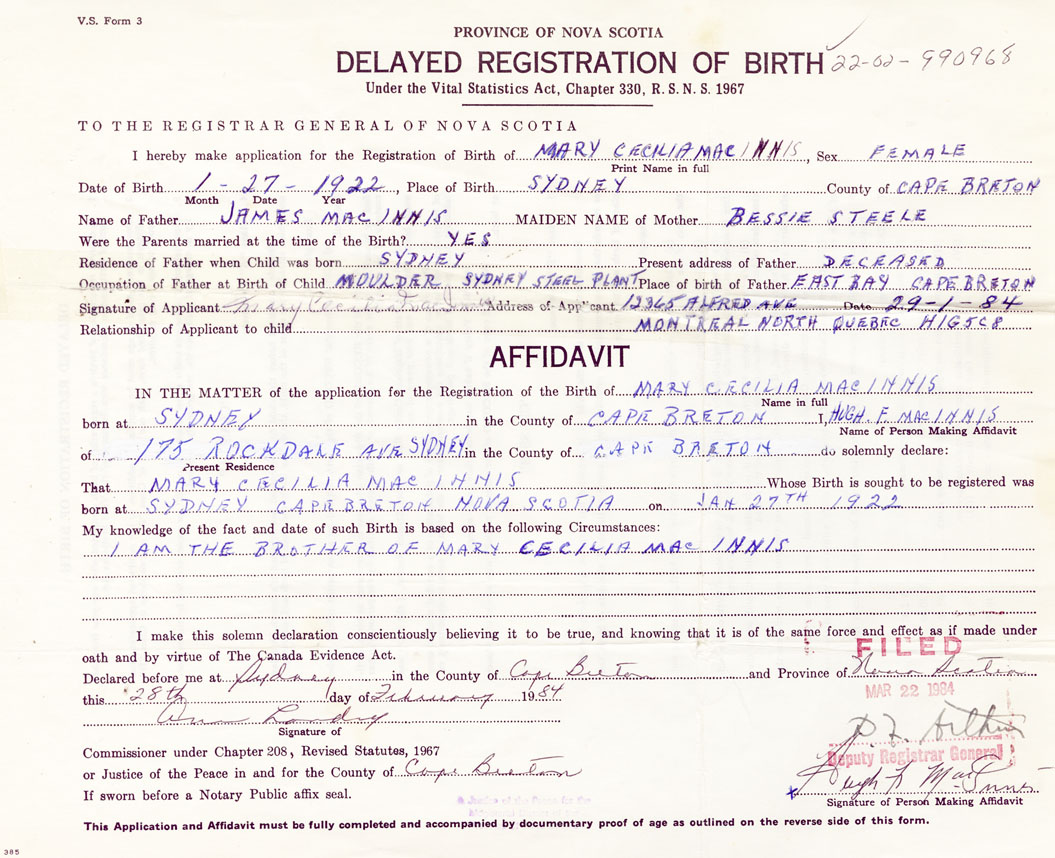 V.S. Form 3
PROVINCE OF NOVA SCOTIA
DELAYED REGISTRATION OF BIRTH 22-02-990968
Under the Vital Statistics Act, Chapter 330, R. S. N. S. 1967
TO THE REGISTRAR GENERAL OF NOVA SCOTIA
I hereby make application for the Registration of Birth of MARY CECILIA MAC INNIS, Sex FEMALE
Print Name in full
Date of Birth 1 - 27 - 1922, Place of Birth SYDNEY County of CAPE BRETON
Month Date Year
Name of Father JAMES MAC INNIS MAIDEN NAME of Mother BESSIE STEELE
Were the Parents married at the time of the Birth? YES
Residence of Father when Child was born SYDNEY Present address of Father DECEASED
Occupation of Father at Birth of Child MOULDER SYDNEY STEEL PLANT Place of birth of Father EAST BAY CAPE BRETON
Signature of Applicant Mary Cecilia Address of Applicant 12365 ALFRED AVE Date 29-1-84
Relationship of Applicant to child MONTREAL NORTH QUEBEC H1G5C8
AFFIDAVIT
IN THE MATTER of the application for the Registration of the Birth of MARY CECILIA MAC INNIS
Name in full
born at SYDNEY in the County of CAPE BRETON I, HUGH. F. MAC INNIS
Name of Person Making Affidavit
of 175 ROCKDALE AVE SYDNEY in the County of CAPE BRETON do solemnly declare:
Present Residence
That MARY CECILIA MAC INNIS Whose Birth is sought to be registered was
born at SYDNEY CAPE BRETON NOVA SCOTIA on JAN 27TH 1922
My knowledge of the fact and date of such Birth is based on the following Circumstances:
I AM THE BROTHER OF MARY CECILIA MAC INNIS
I make this solemn declaration conscientiously believing it to be true, and knowing that it is of the same force and effect as if made under
oath and by virtue of The Canada Evidence Act.
FILED
Declared before me at Sydney in the County of Cape Breton and Province of Nova Scotia
this 28th day of February 1984
MAR 22 1984
Ann Landry
Signature of
Commissioner under Chapter 208, Revised Statutes, 1967
Deputy Registrar General
or Justice of the Peace in and for the County of Cape Breton
Hugh F MacInnis
If sworn before a Notary Public affix seal.
x
Signature of Person Making Affidavit
a Justice of the Peace for the
This Application and Affidavit must be fully completed and accompanied by documentary proof of age as outlined on the reverse side of this form.
385